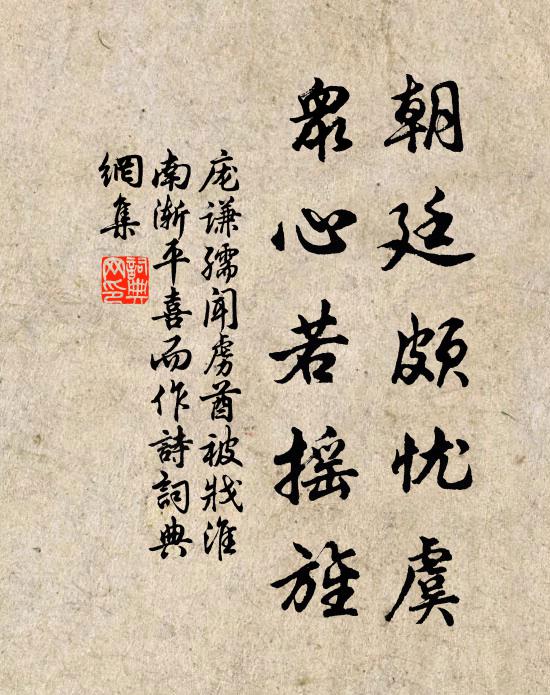 朝廷頗忧虞
眾心若搖旌
庞谦孺闻虏酋被戕淮
南渐平喜而作詩詞典
網集
詞典網印